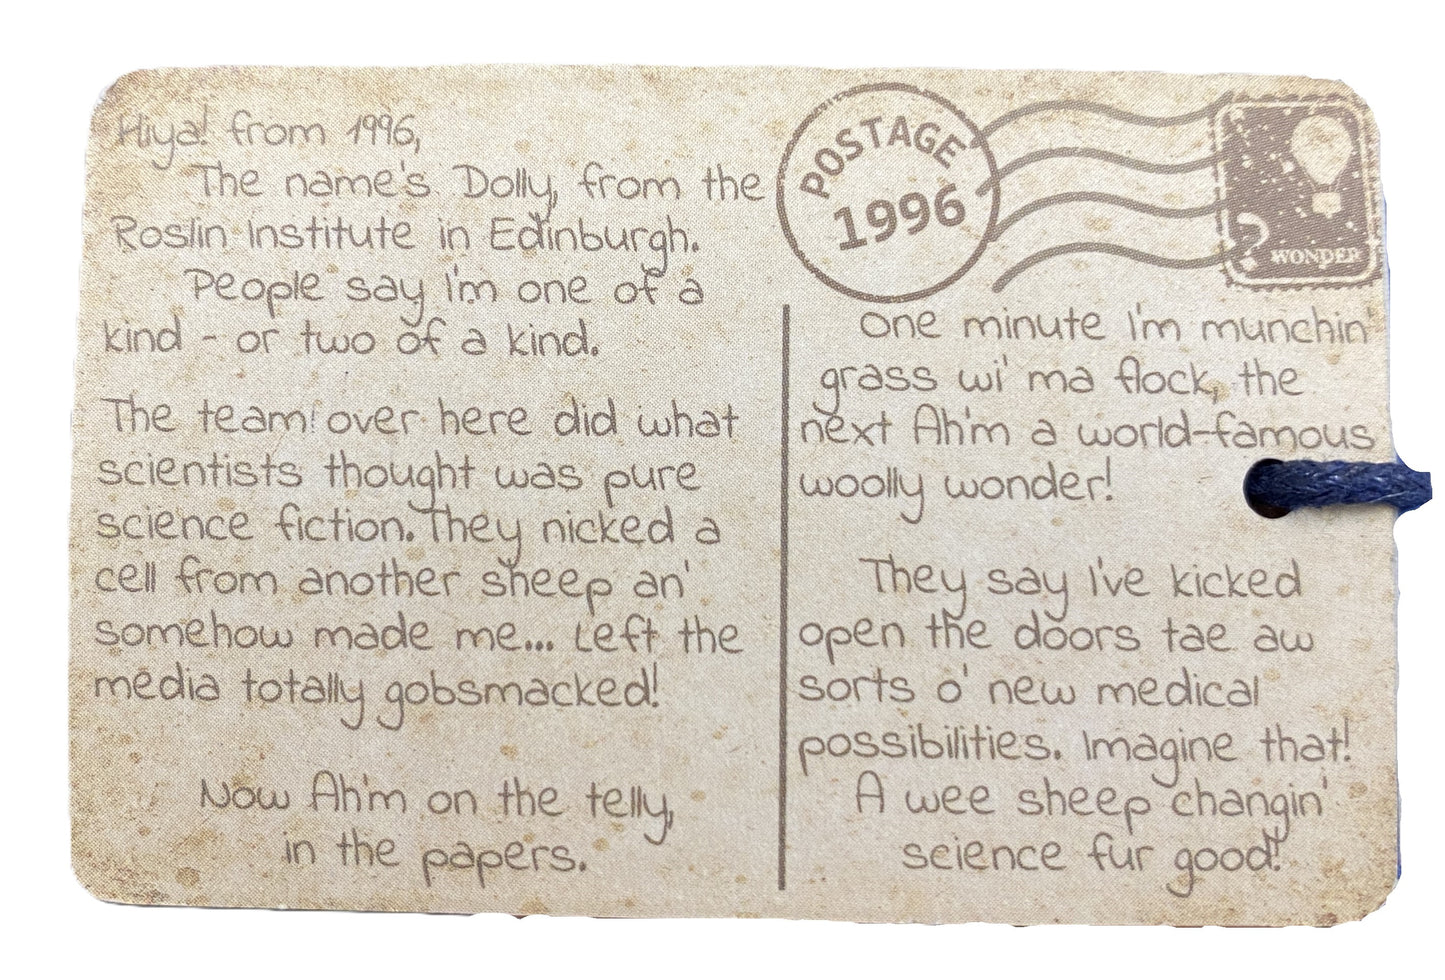 Hiya! from 1996,
The name's Dolly, from the
Roslin Institute in Edinburgh.
People say I'm one of a
kind - or two of a kind.
The team over here did what
scientists thought was pure
science fiction. They nicked a
cell from another sheep an'
somehow made me... Left the
media totally gobsmacked!
Now Ah'm on the telly,
in the papers.
POSTAGE
1996
? WONDER
One minute I'm munchin'
grass wi' ma flock, the
next Ah'm a world-famous
woolly wonder!
They say I've kicked
open the doors tae aw
sorts o' new medical
possibilities. Imagine that!
A wee sheep changin'
science fur good!